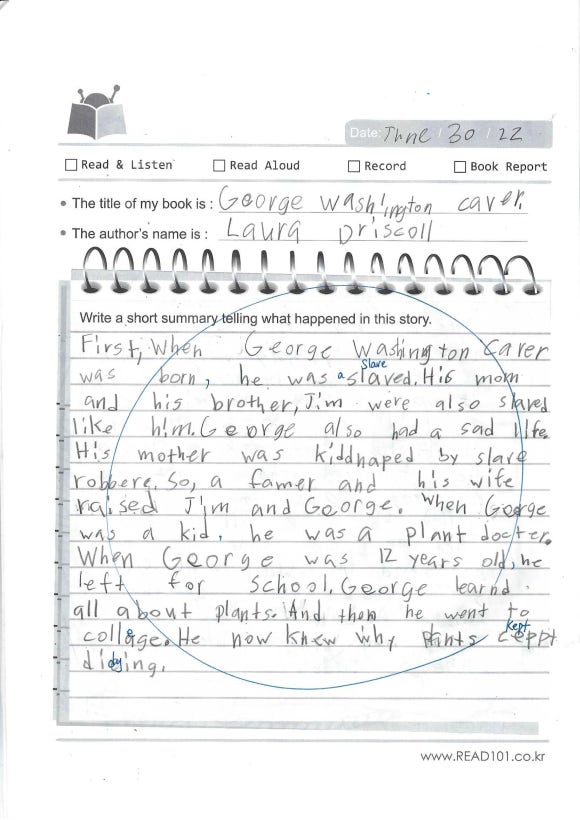 Date: June / 30 / 22
Read & Listen Read Aloud Record Book Report
• The title of my book is : George Washington caver.
• The author's name is : Laura Driscoll
Write a short summary telling what happened in this story.
First, When George Washington Carer
Slave
was born, he was a slaved. His mom
and his brother, Jim were also slaved
like him. George also had a sad life.
His mother was kiddnaped by slave
robbere. So, a famer and his wife
raised Jim and George. When George
was a kid, he was a plant docter.
When George was 12 years old, he
left for school. George learnd
all about plants. And then he went to
Kept
collage. He now knew why plants ceppt
didying.
www.READ101.co.kr